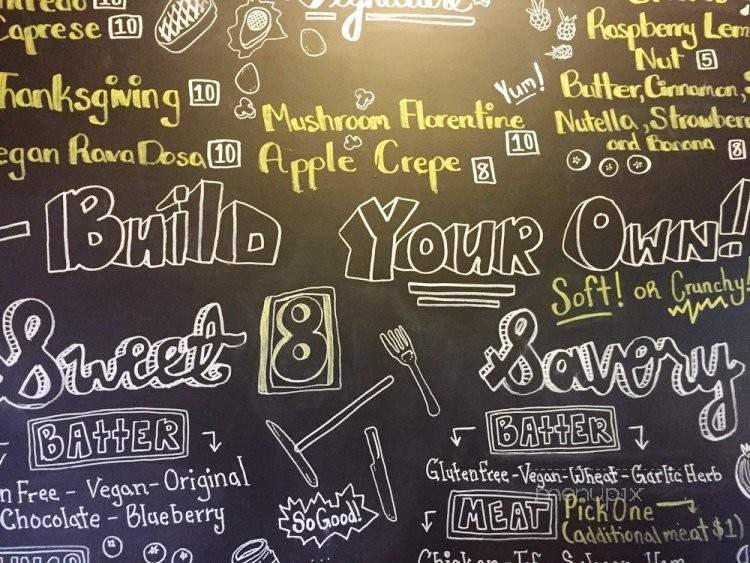 10
Caprese 10
Thanksgiving 10
Vegan Rava Dosa 10
Signature
Yum!
Mushroom Florentine 10
Apple Crepe 8
Raspberry Lem
Nut 5
Butter, Cinnamon,
Nutella, Strawberr
and Banana 8
- Build Your Own!
Soft! or Crunchy!
Sweet 8 Savory
Batter
n Free - Vegan - Original
Chocolate - Blueberry
So Good!
Batter
Gluten Free - Vegan - Wheat - Garlic Herb
menupix
Meat Pick One
(additional meat $1)